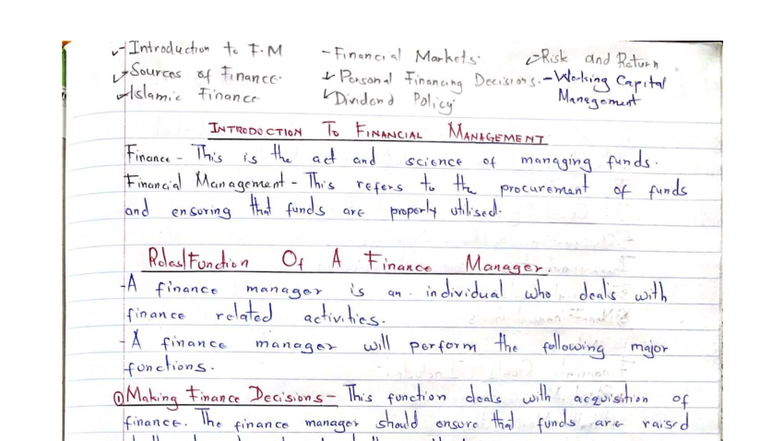 - Introduction to F.M - Financial Markets. - Risk and Return
- Sources of Finance. - Personal Financing Decisions. - Working Capital
- Islamic Finance - Dividend Policy Management
INTRODUCTION TO FINANCIAL MANAGEMENT
Finance - This is the act and science of managing funds.
Financial Management - This refers to the procurement of funds
and ensuring that funds are properly utilised.
Roles/Function Of A Finance Manager.
- A finance manager is an individual who deals with
finance related activities.
- A finance manager will perform the following major
functions.
① Making Finance Decisions - This function deals with acquisition of
finance. The finance manager should ensure that funds are raised